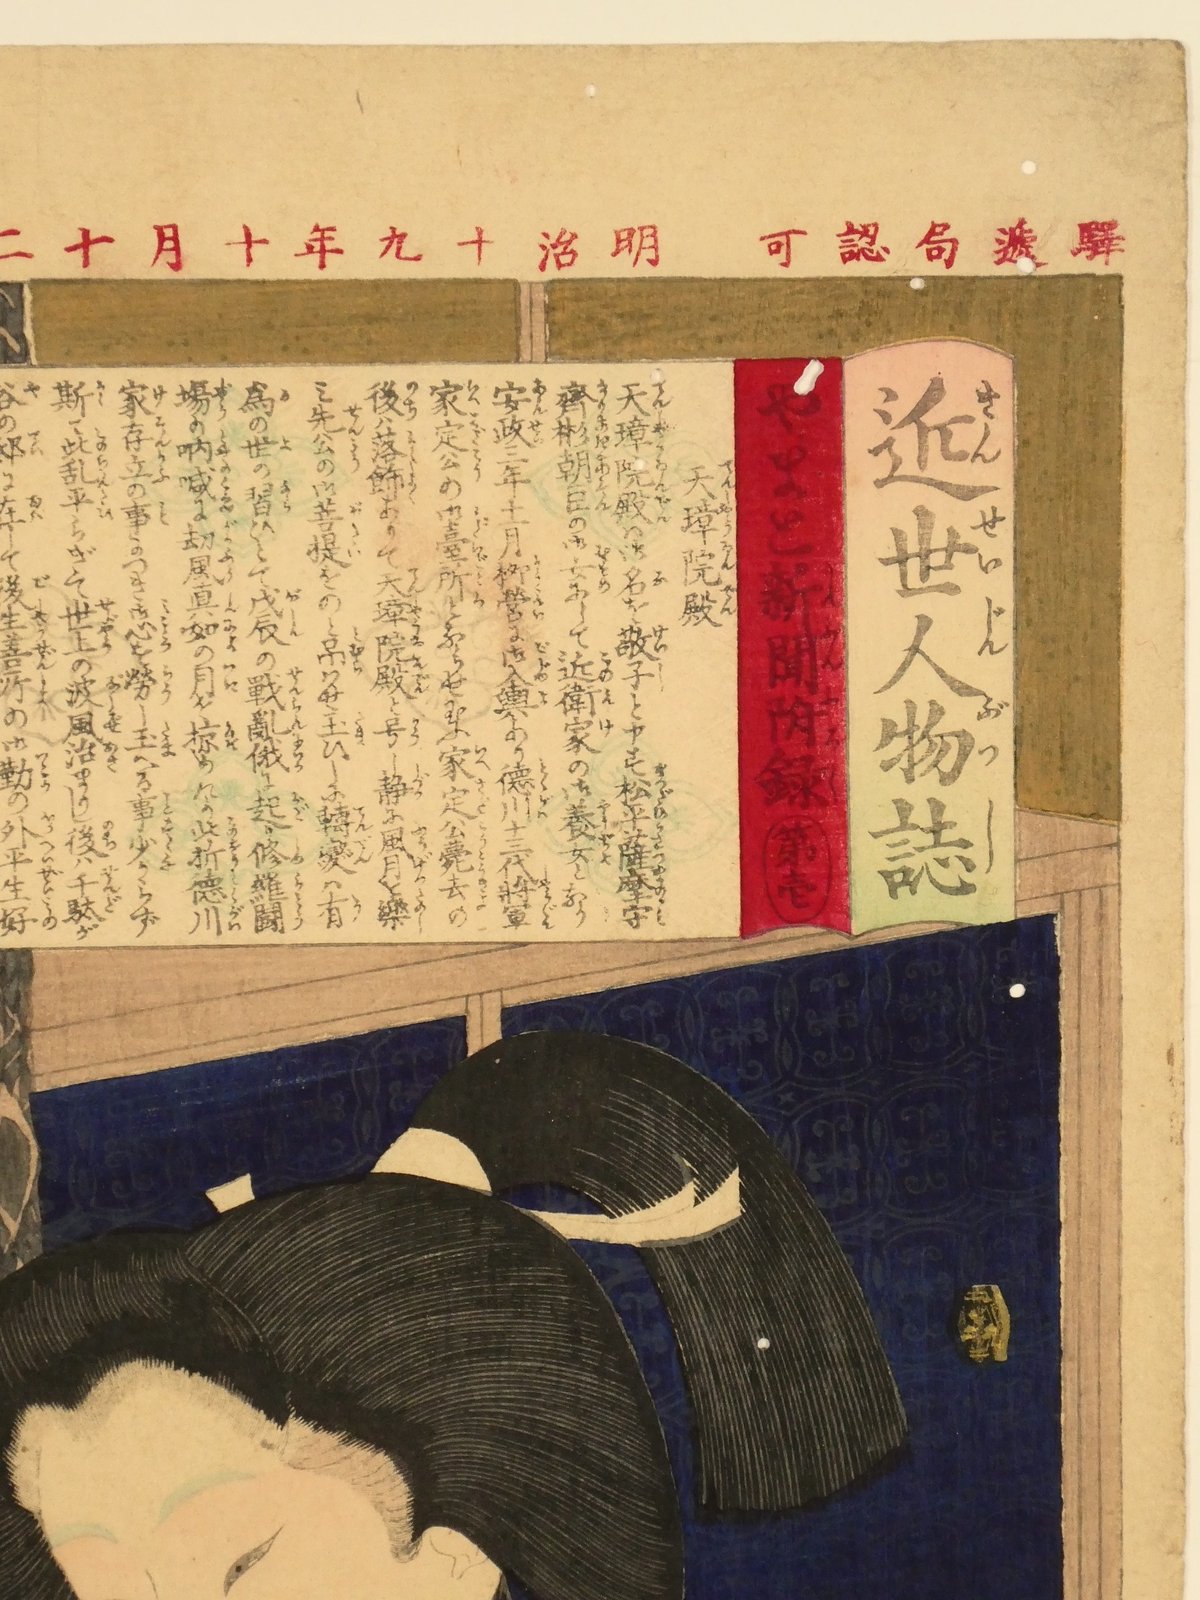 驛遞局認可　明治十九年十月十二
近世人物誌
きんせいじんぶつし
やまと新聞附録 第壱
天璋院殿
天璋院殿ハ御名を敬子と申す松平薩摩守
齊彬朝臣の御女にして近衛家の御養女となり
安政三年十一月柳營に御入輿あり徳川十三代將軍
家定公の御臺所とならせ玉ふ家定公薨去の
後ハ落飾ありて天璋院殿と号し静に風月を樂
ミ先公の御菩提をのミ吊ハせ玉ひしに轉變ハ有
為の世の習ひとて戊辰の戰亂俄に起り修羅鬪
場の吶喊に劫風真如の月を掠めけれバ此折徳川
家存立の事につき御心を勞し玉へる事少からず
斯て此乱平らぎて世上の波風治まりし後ハ千駄ヶ
谷の邸に在して後生善所の御勤の外平生好